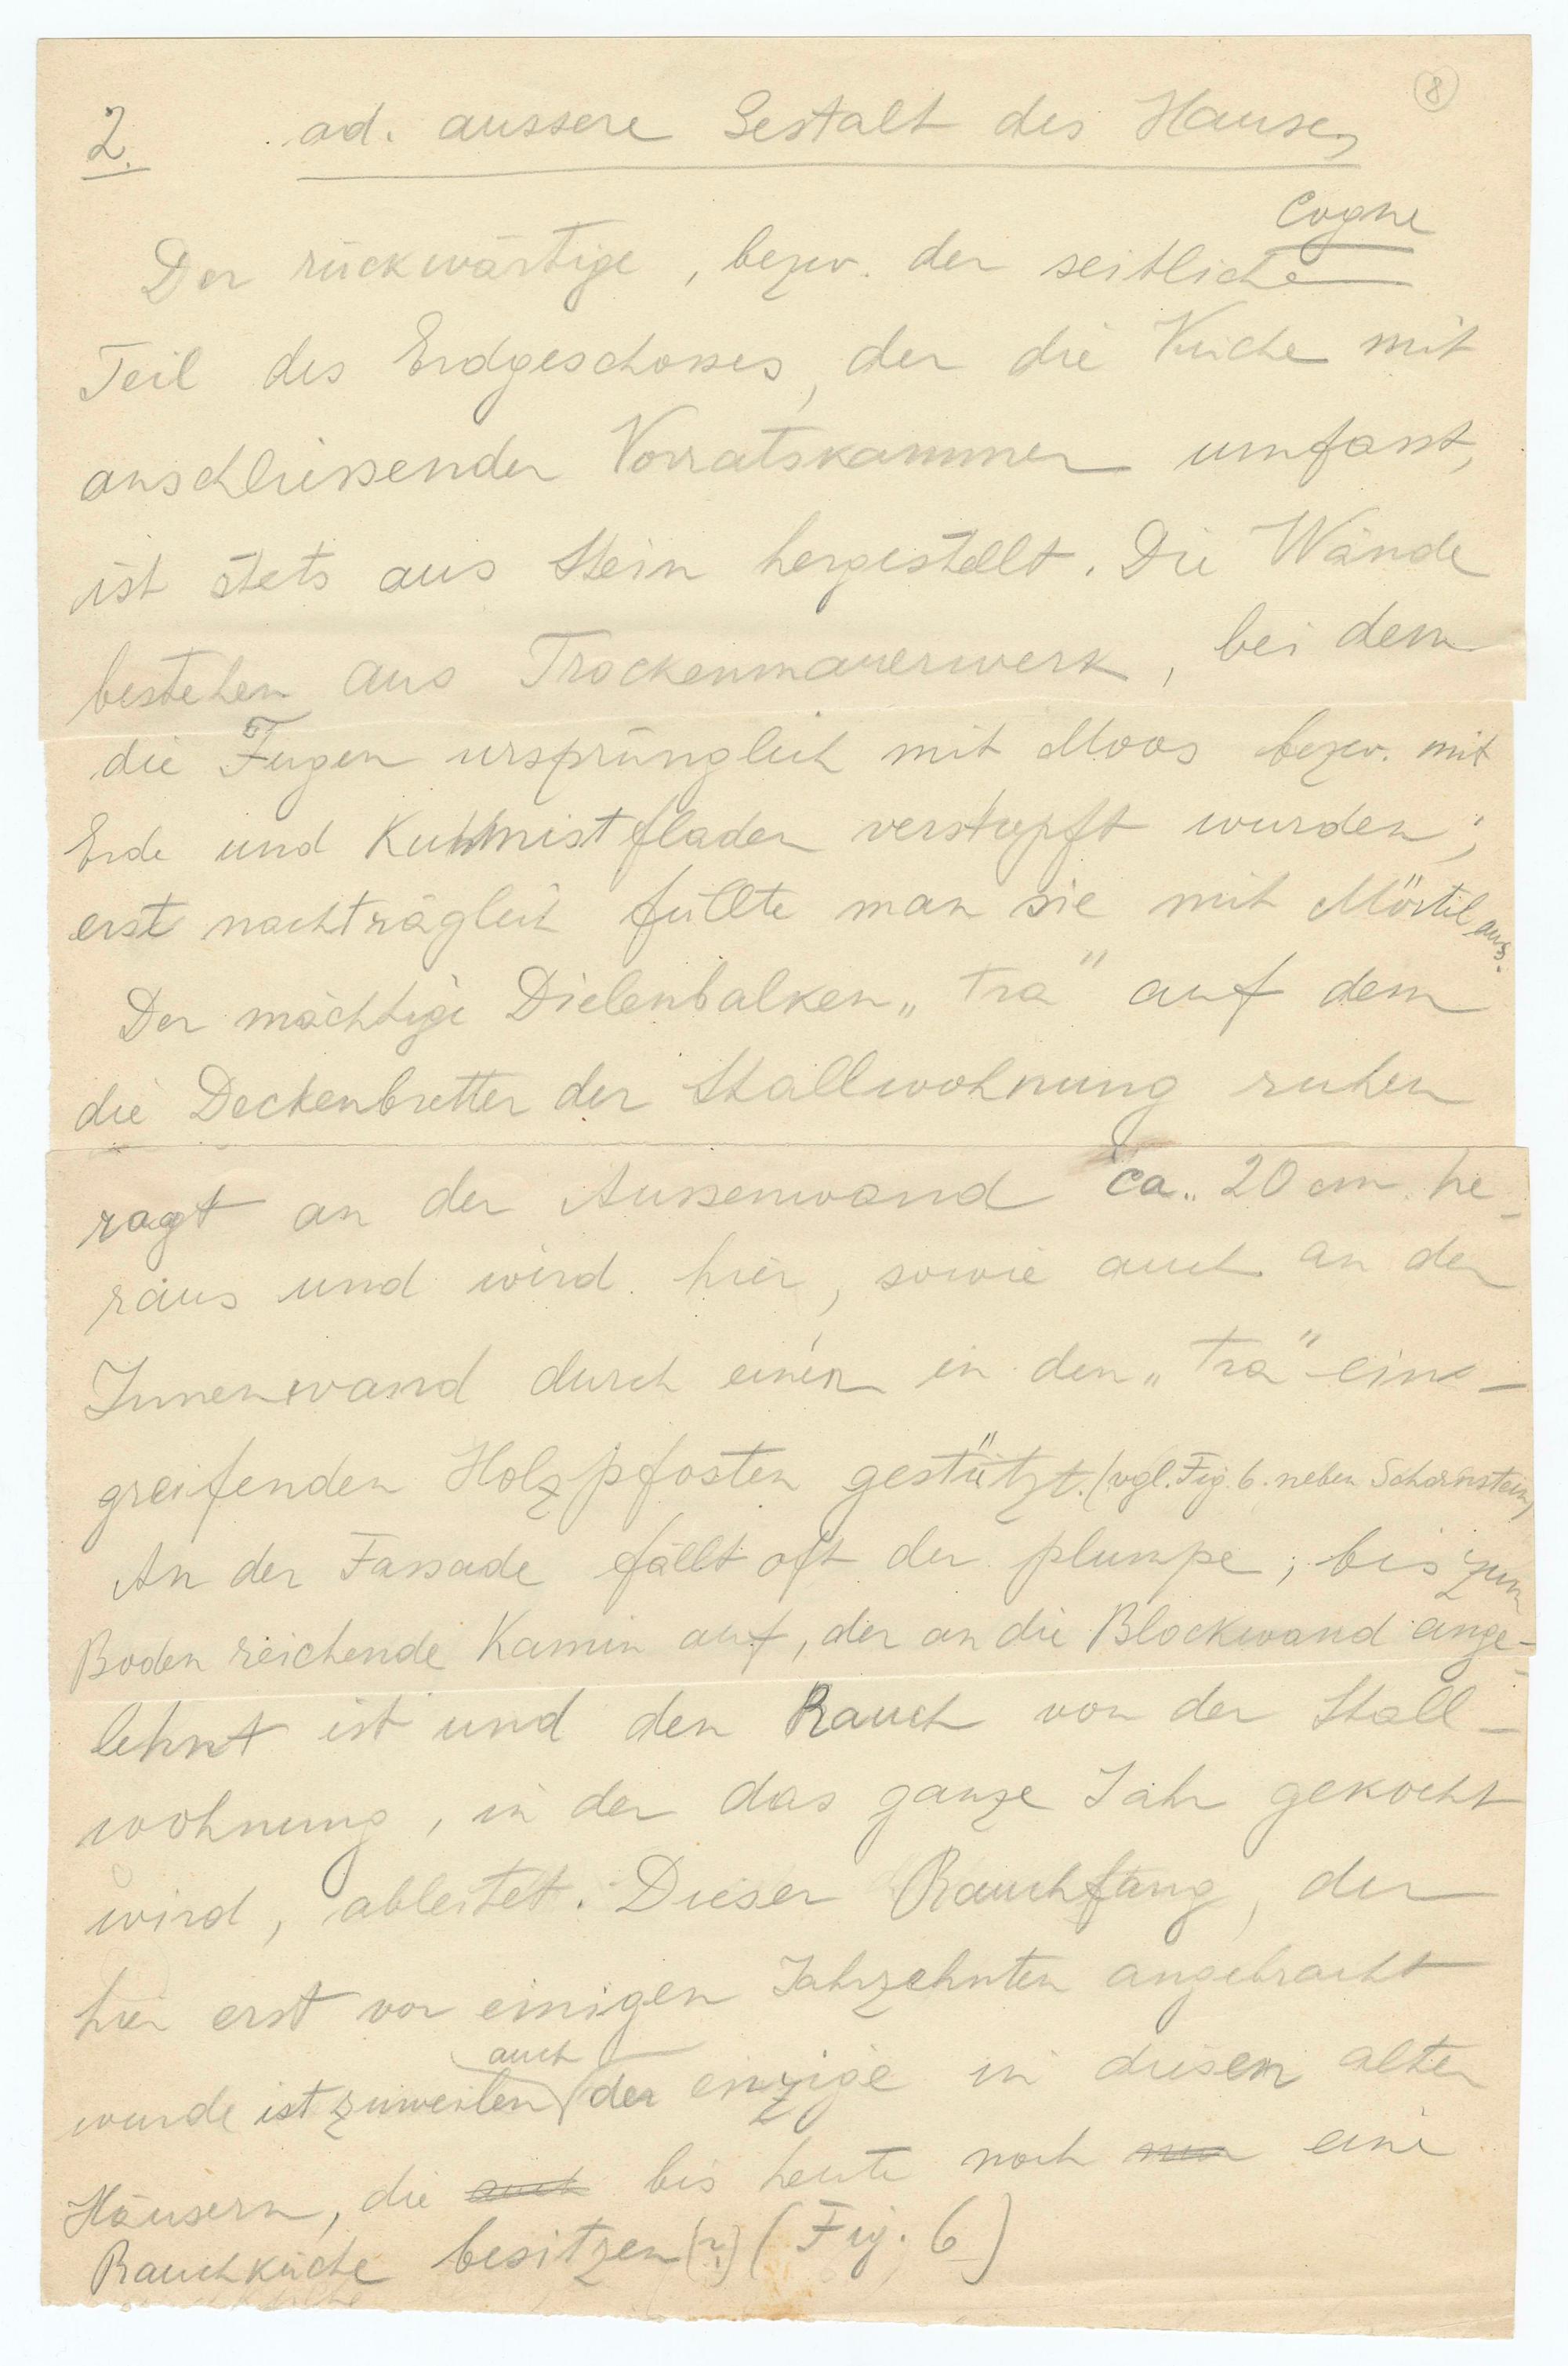 8
2. ad. aussere Gestalt des Hauses
Cogne
Der rückwärtige, bezw. der seitliche
Teil des Erdgeschosses, der die Küche mit
anschliessender Vorratskammer umfasst,
ist stets aus Stein hergestellt. Die Wände
bestehen aus Trockenmauerwerk, bei dem
die Fugen ursprünglich mit Moos bezw. mit
Erde und Kuhmistfladen verstopft wurden;
erst nachträglich füllte man sie mit Mörtel aus.
Der mächtige Dielenbalken „tra" auf dem
die Deckenbretter der Stallwohnung ruhen
ragt an der Aussenwand ca. 20 cm he-
raus und wird hier, sowie auch an der
Innenwand durch einen in den „tra" ein-
greifenden Holzpfosten gestützt. (vgl. Fig. 6. neben Schornstein)
An der Fassade fällt oft der plumpe, bis zum
Boden reichende Kamin auf, der an die Blockwand ange-
lehnt ist und den Rauch von der Stall-
wohnung, in der das ganze Jahr gekocht
wird, ableitet. Dieser Rauchfang, der
hier erst vor einigen Jahrzehnten angebracht
auch
wurde ist zuweilen der einzige in diesen alten
Häusern, die auch bis heute noch nur eine
Rauchküche besitzen (?) (Fig. 6)